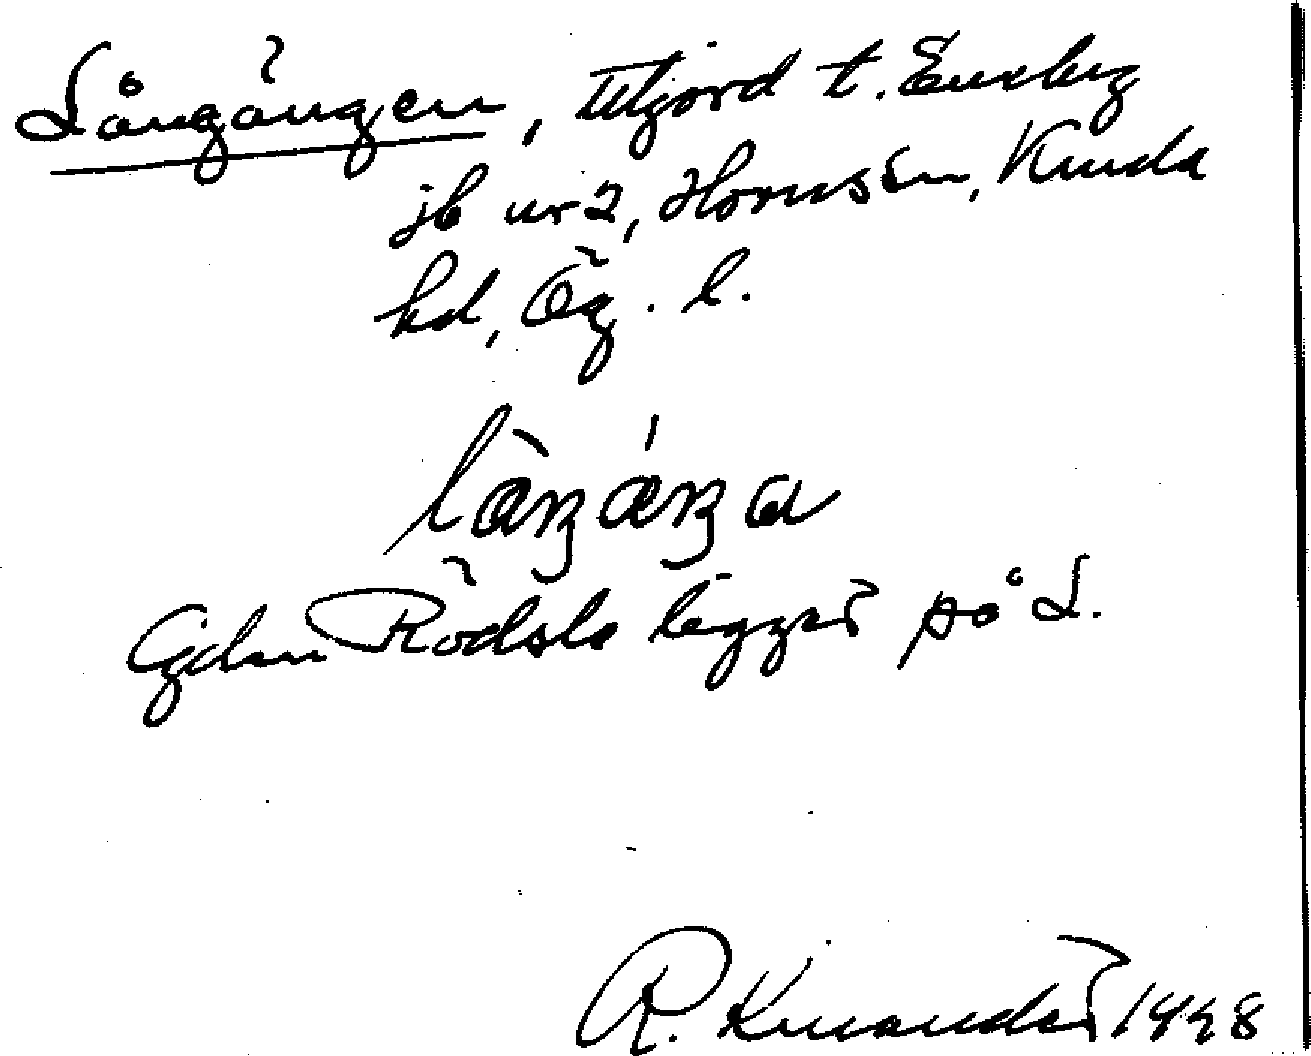 Långängen, utjord t. Eneby
jb nr 2, Hornsön, Kinda
hd, Ög. l.
Gden Rödsle ligger på L.
R. Kinander 1948